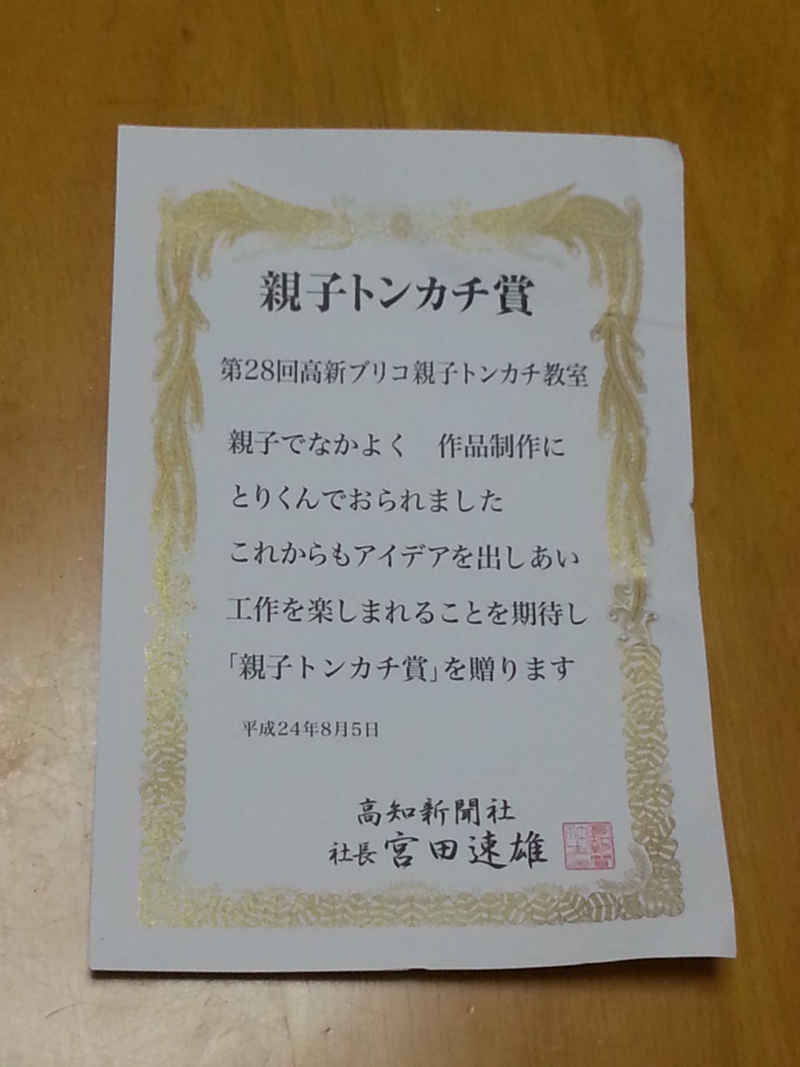 親子トンカチ賞
第28回高新ブリコ親子トンカチ教室
親子でなかよく　作品制作に
とりくんでおられました
これからもアイデアを出しあい
工作を楽しまれることを期待し
「親子トンカチ賞」を贈ります
平成24年8月5日
高知新聞社
社長 宮田速雄